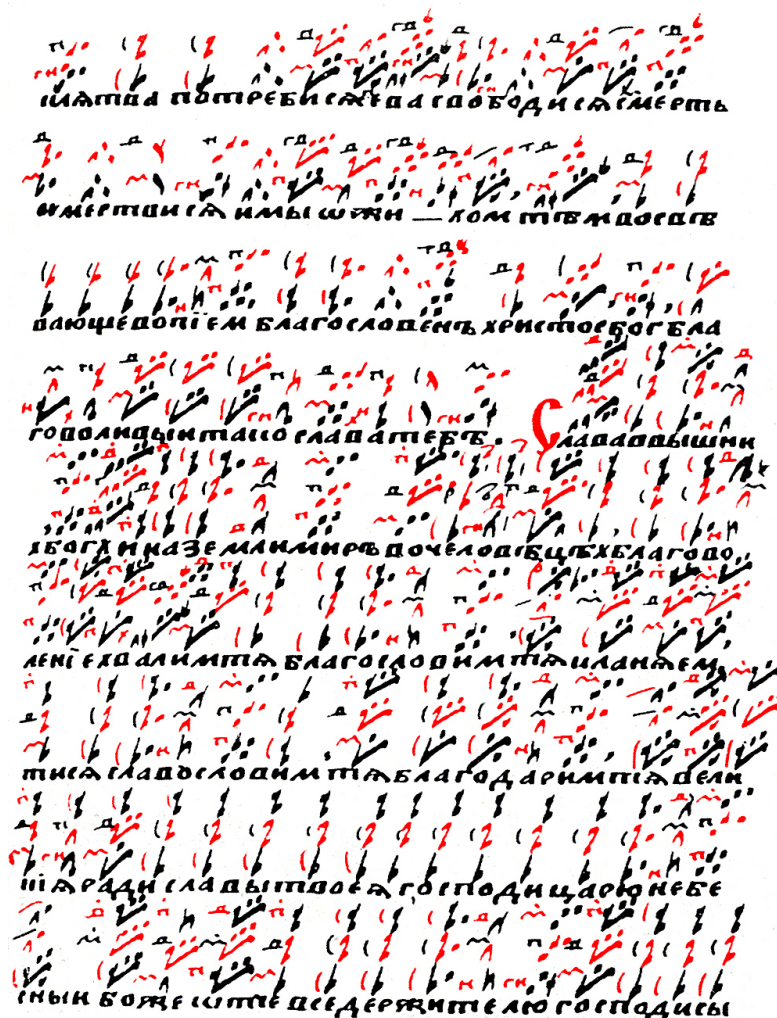 клѧтва потребисѧ ева свободисѧ смерть
умертвисѧ и мы ѡжи — хом тѣмже воспѣ
вающе вопїем благословенъ христос бог бла
говоливыи тако слава тебѣ. Слава в вышни
х богꙋ и на земли миръ во человѣцѣх благово
ленїе хвалим тѧ благословим тѧ кланѧем
тисѧ славословим тѧ благодарим тѧ вели
кїѧ ради славы твоеѧ господи царю небе
сныи боже ѿтче вседержителю господи сы